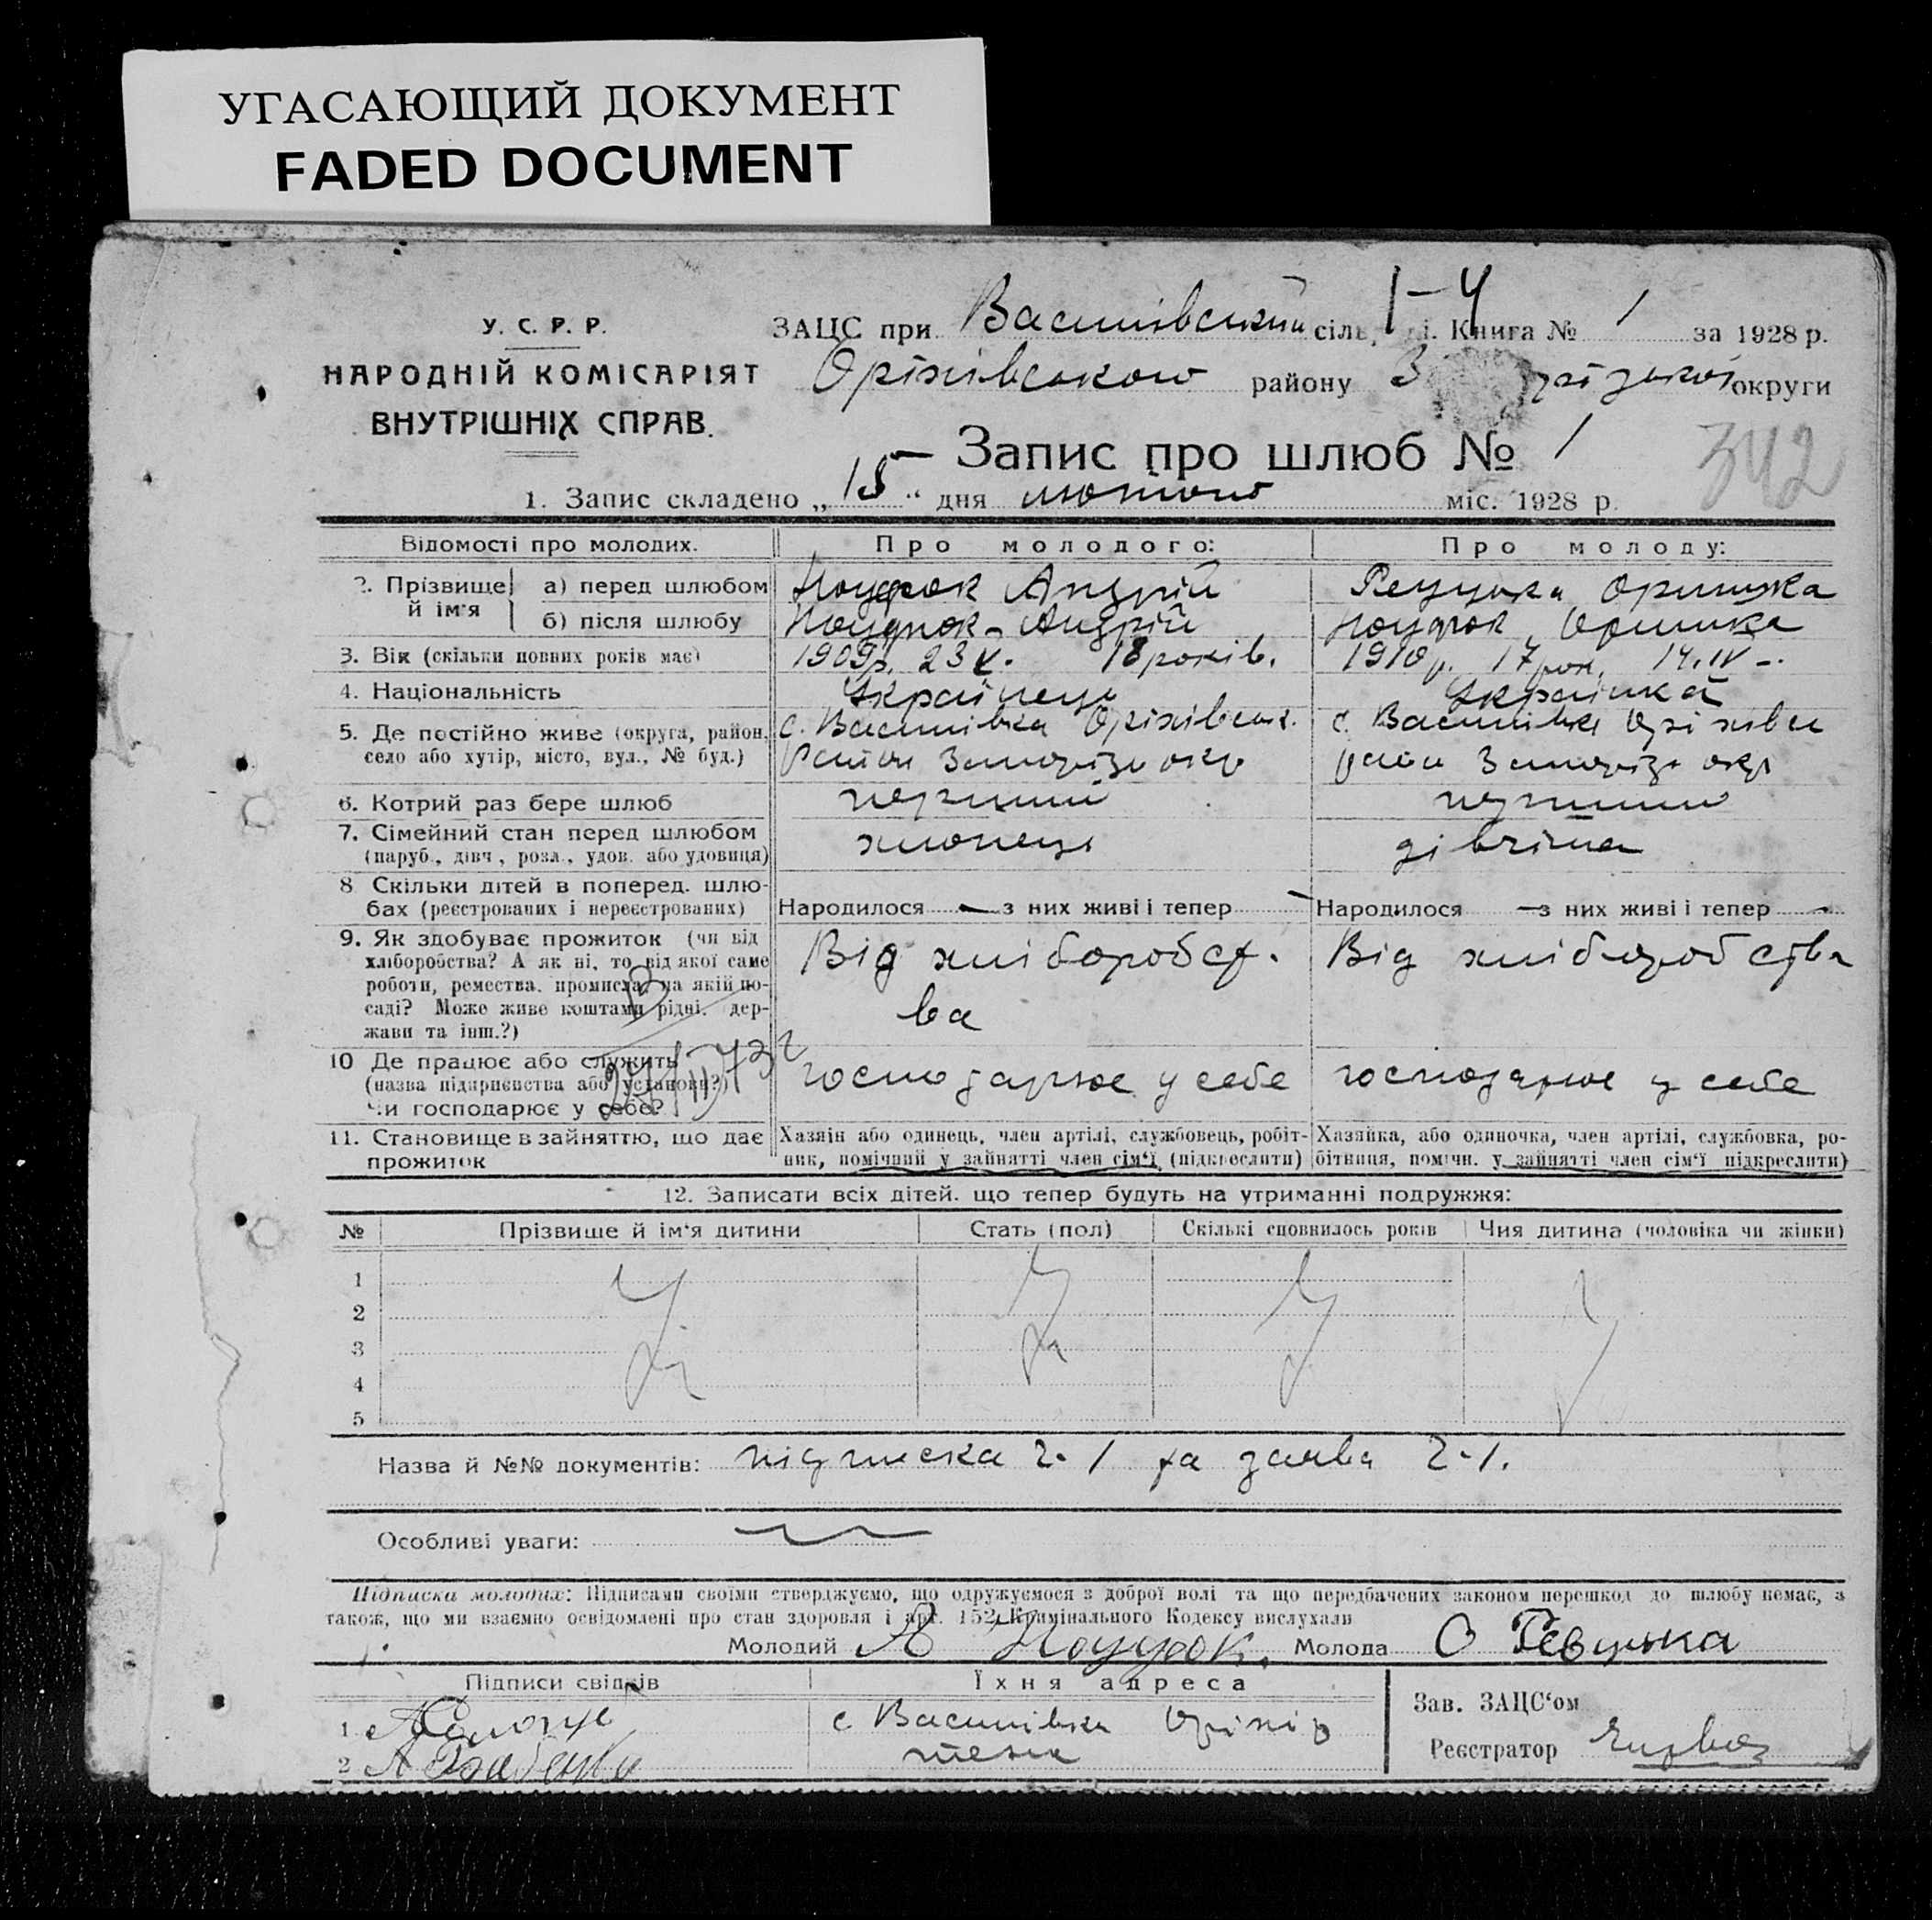 УГАСАЮЩИЙ ДОКУМЕНТ
FADED DOCUMENT
У. С. Р. Р.
НАРОДНІЙ КОМІСАРІЯТ
ВНУТРІШНІХ СПРАВ.
1-4
ЗАЦС при Василівській сіль. Книга № 1 за 1928 р.
Оріхівського району округи
Запис про шлюб № 1
342
1. Запис складено „15“ дня лютого міс. 1928 р.
Відомості про молодих. Про молодого: Про молоду:
2. Прізвище й ім'я а) перед шлюбом Андрій Оришка
б) після шлюбу Андрій Оришка
3. Вік (скільки повних років має) 1909р. 23 V. 18 років. 1910р. 17 рок. 14.IV
4. Національність Українець Українка
5. Де постійно живе (округа, район, с. Василівка Оріхівськ. с. Василівка Оріхівськ
село або хутір, місто, вул., № буд.) район Запоріз окр район Запоріз окр
6. Котрий раз бере шлюб перший перший
7. Сімейний стан перед шлюбом хлопець дівчина
(паруб., дівч., розл., удов. або удовиця)
8 Скільки дітей в поперед. шлю-
бах (реєстрованих і нереєстрованих) Народилося — з них живі і тепер — Народилося — з них живі і тепер —
9. Як здобуває прожиток (чи від Від хліборобст- Від хліборобства
хліборобства? А як ні, то від якої саме
роботи, ремества, промисла, на якій по- ва
саді? Може живе коштами рідні, дер-
жави та інш.?)
10 Де працює або служить
(назва підприємства або установи?) господарює у себе господарює у себе
Чи господарює у себе?
11. Становище в зайняттю, що дає Хазяїн або одинець, член артілі, службовець, робіт- Хазяйка, або одиночка, член артілі, службовка, ро-
прожиток ник, помічний у зайнятті член сім'ї (підкреслити) бітниця, помічн. у зайнятті член сім'ї підкреслити)
12. Записати всіх дітей, що тепер будуть на утриманні подружжя:
№ Прізвище й ім'я дитини Стать (пол) Скількі сповнилось років Чия дитина (чоловіка чи жінки)
1
2
3
4
5
Назва й №№ документів: підписка ч. 1 та заява ч. 1.
Особливі уваги:
Підписка молодих: Підписами своїми стверджуємо, що одружуємося з доброї волі та що передбачених законом перешкод до шлюбу немає, а
також, що ми взаємно освідомлені про стан здоровля і арт. 152 Кримінального Кодексу вислухали
Молодий А Молода О Ревуцька
Підписи свідків Їхня адреса
Зав. ЗАЦС'ом
1 с Василівка Оріхів
2
Реєстратор